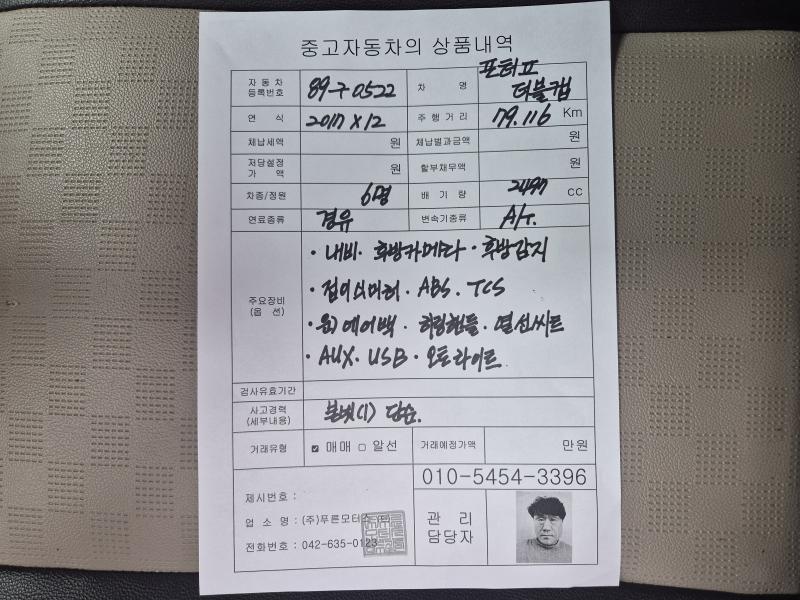 중고자동차의 상품내역
자동차 등록번호 89구0522 차 명 포터Ⅱ 더블캡
연 식 2017 X 12 주행거리 79.116 Km
체납세액 원 체납벌과금액 원
저당설정 가 액 원 할부채무액 원
차종/정원 6명 배 기 량 2497 cc
연료종류 경유 변속기종류 A/T.
주요장비 (옵 션)
· 내비 · 후방카메라 · 후방감지
· 접이식미러 · ABS · TCS
· 운) 에어백 · 열선씨트
· AUX · USB · 오토라이트
검사유효기간
사고경력 (세부내용) 본넷(1) 단순.
거래유형 ☑ 매매 □ 알선 거래예정가액 만원
010-5454-3396
제시번호 :
업 소 명 : (주)푸른모터스
전화번호 : 042-635-0123
관 리 담당자